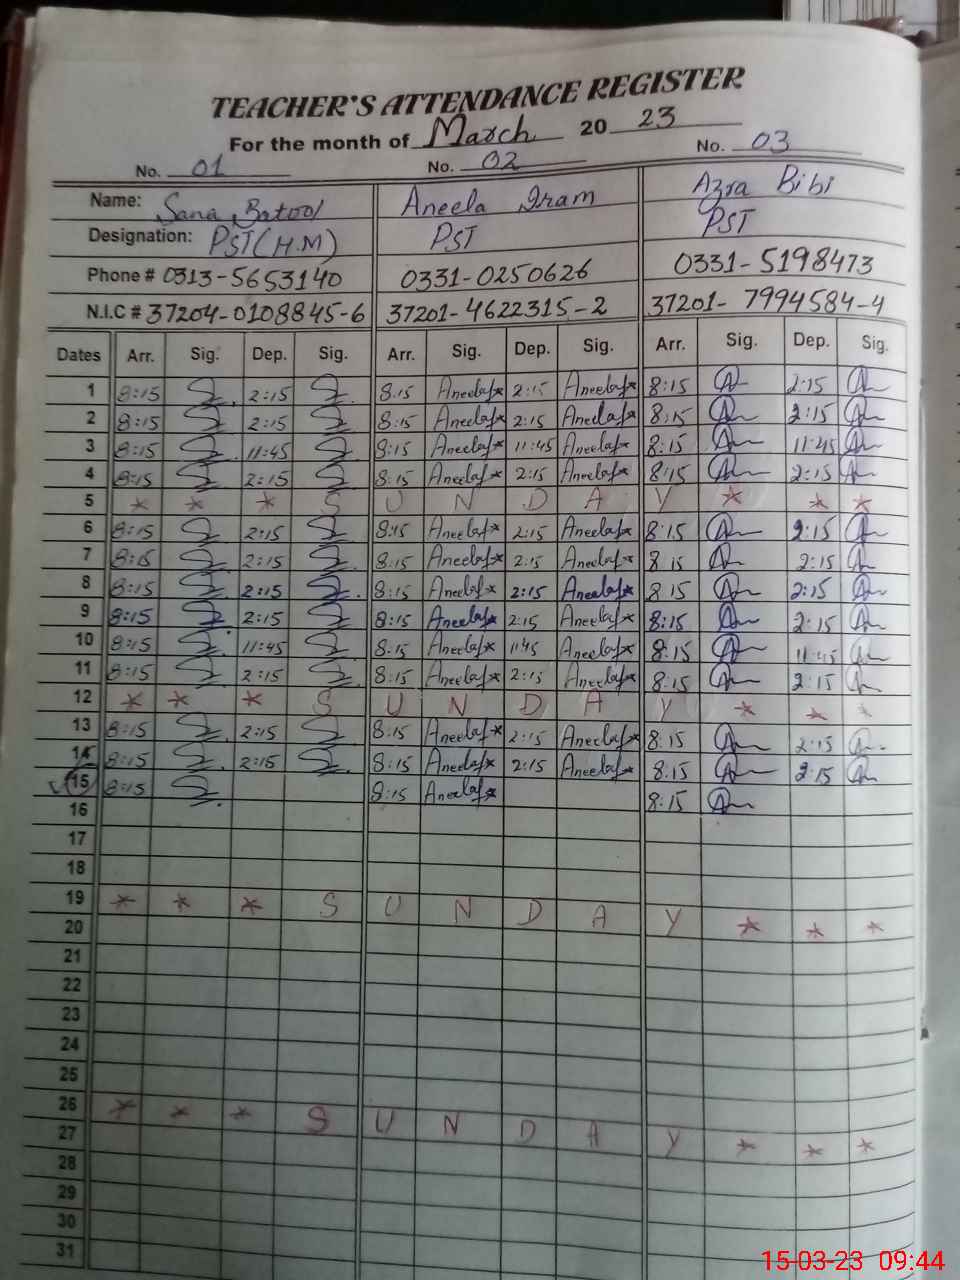 TEACHER'S ATTENDANCE REGISTER
For the month of March 2023
No. 01 No. 02 No. 03
Name: Sana Batool Aneela Iram Azra Bibi
Designation: PST(H.M) PST PST
Phone # 0313-5653140 0331-0250626 0331-5198473
N.I.C # 37204-0108845-6 37201-4622315-2 37201-7994584-4
Dates Arr. Sig. Dep. Sig. Arr. Sig. Dep. Sig. Arr. Sig. Dep. Sig.
1 8:15 2:15 8:15 Aneelaf* 2:15 Aneelaf* 8:15 2:15
2 8:15 2:15 8:15 Aneelaf* 2:15 Aneelaf* 8:15 2:15
3 8:15 11:45 8:15 Aneelaf* 11:45 Aneelaf* 8:15 11:45
4 8:15 2:15 8:15 Aneelaf* 2:15 Aneelaf* 8:15 2:15
5 * * * S U N D A Y * * *
6 8:15 2:15 8:15 Aneelaf* 2:15 Aneelaf* 8:15 2:15
7 8:15 2:15 8:15 Aneelaf* 2:15 Aneelaf* 8:15 2:15
8 8:15 2:15 8:15 Aneelaf* 2:15 Aneelaf* 8:15 2:15
9 8:15 2:15 8:15 Aneelaf* 2:15 Aneelaf* 8:15 2:15
10 8:15 11:45 8:15 Aneelaf* 11:45 Aneelaf* 8:15 11:45
11 8:15 2:15 8:15 Aneelaf* 2:15 Aneelaf* 8:15 2:15
12 * * * S U N D A Y * * *
13 8:15 2:15 8:15 Aneelaf* 2:15 Aneelaf* 8:15 2:15
14 8:15 2:15 8:15 Aneelaf* 2:15 Aneelaf* 8:15 2:15
15 8:15 8:15 Aneelaf* 8:15
16
17
18
19 * * * S U N D A Y * * *
20
21
22
23
24
25
26 * * * S U N D A Y * * *
27
28
29
30
31
15-03-23 09:44